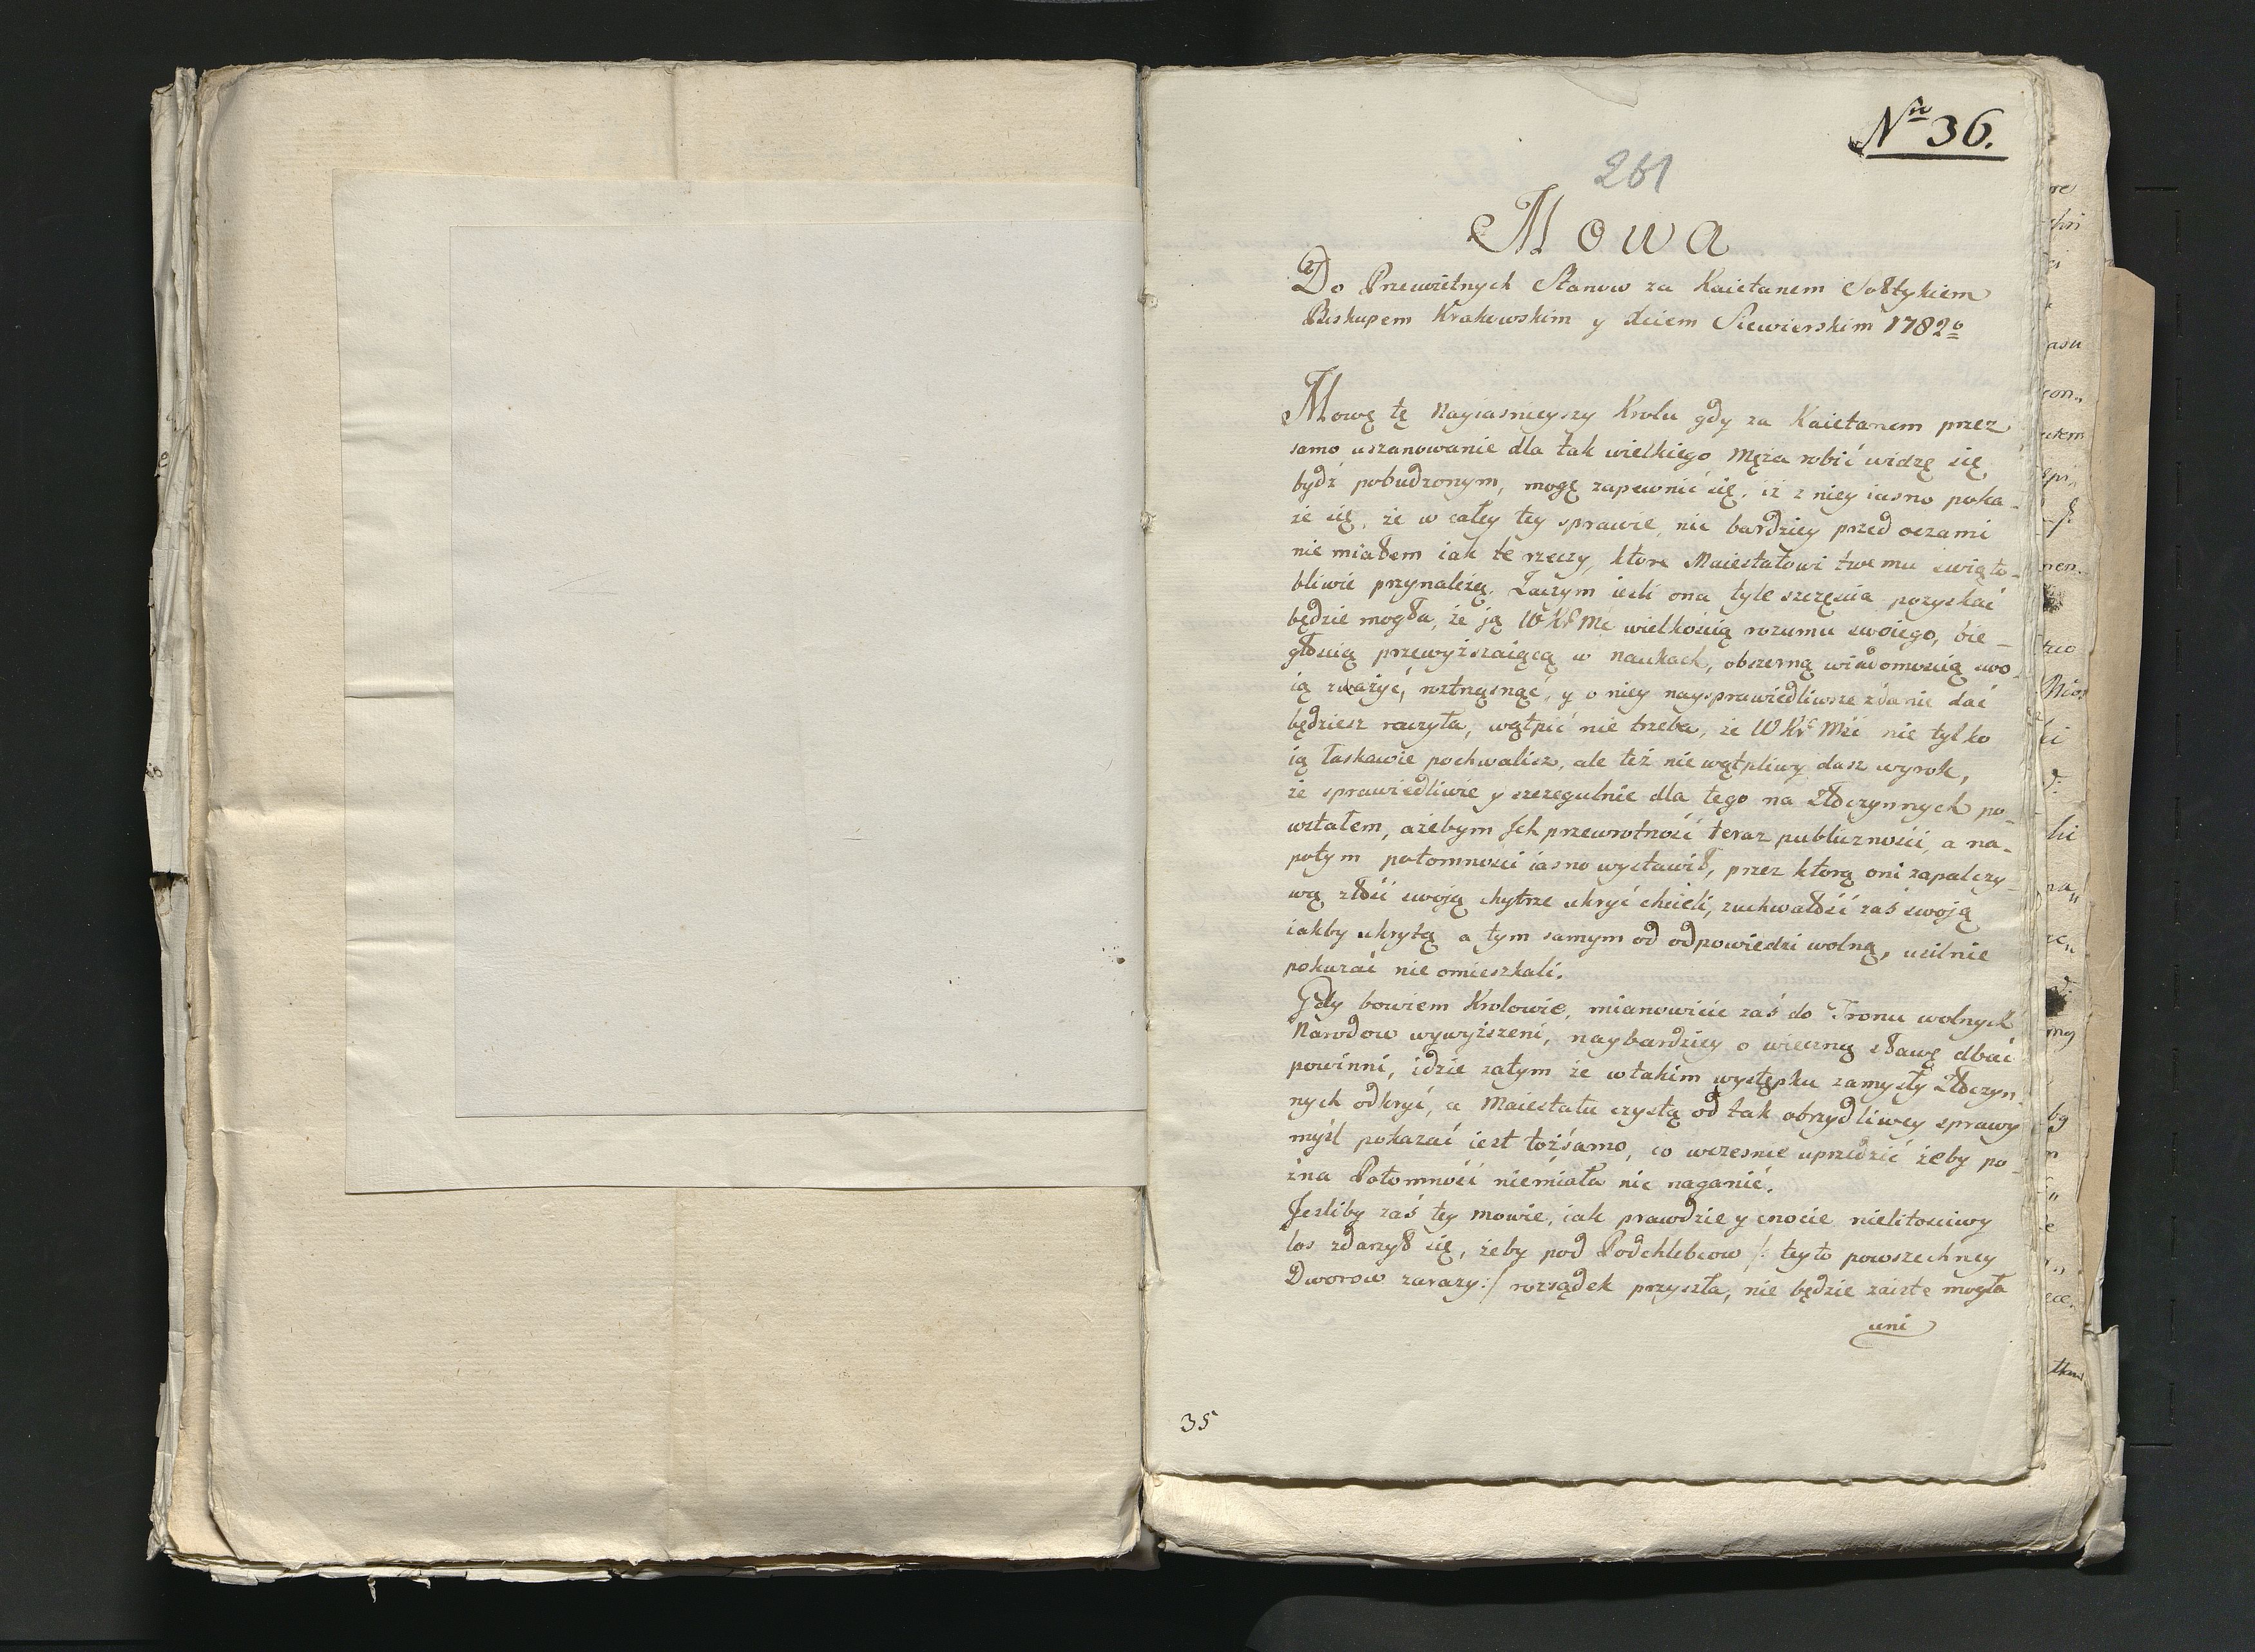 Nro 36.
261
Mowa
Do Prześwietnych Stanow za Kaietanem Sołtykiem
Biskupem Krakowskim y Xciem Siewierskim 1782o
Mowę tę Nayiasnieyszy Krolu gdy za Kaietanem przez
samo uszanowanie dla tak wielkiego Męża robić widzę się
bydź pobudzonym, mogę zapewnić się, iż z niey iasno poka-
że się, że w całey tey sprawie nic bardziey przed oczami
nie miałem iak te rzeczy, ktore Maiestatowi twemu swięto-
bliwie przynależą. Zaczym iesli ona tyle szczęscia pozyskać
będzie mogła, że ją WKr Mć wielkoscią rozumu swoiego, bie-
głoscią przewyższaiącą w naukach, obszerną wiadomoscią swo-
ią zważyć, roztrząsnąć, y o niey naysprawiedliwsze zdanie dać
będziesz raczyła, wątpić nie trzeba, że WKr Mść nie tylko
ią łaskawie pochwalisz, ale też niewątpliwy dasz wyrok,
że sprawiedliwie y szczegulnie dla tego na Złoczynnych po-
wstałem, ażebym Ich przewrotność teraz publicznosci, a na-
potym potomnosci iasno wystawił, przez ktorą oni zapalczy-
wą złość swoją chytrze ukryć chcieli, zuchwałość zaś swoją
iakby ukrytą a tym samym od odpowiedzi wolną, usilnie
pokazać nie omieszkali.
Gdy bowiem Krolowie, mianowicie zaś do Tronu wolnych
Narodow wywyższeni, naybardziey o wieczną sławę dbać
powinni, idzie zatym że w takim występku zamysły Złoczyn-
nych odkryć, a Maiestatu czystą od tak obrzydliwey sprawy
myśl pokazać iest tożsamo, co wczesnie uprzedzić żeby po-
żna Potomność niemiała nic naganić.
Jezliby zaś tey mowie, iak prawdzie y cnocie nielitosciwy
los zdarzył się, żeby pod Podchlebcow /: tey to powszechney
Dworow zarazy :/ rozsądek przyszła, nie będzie zaiste mogła
uni
35